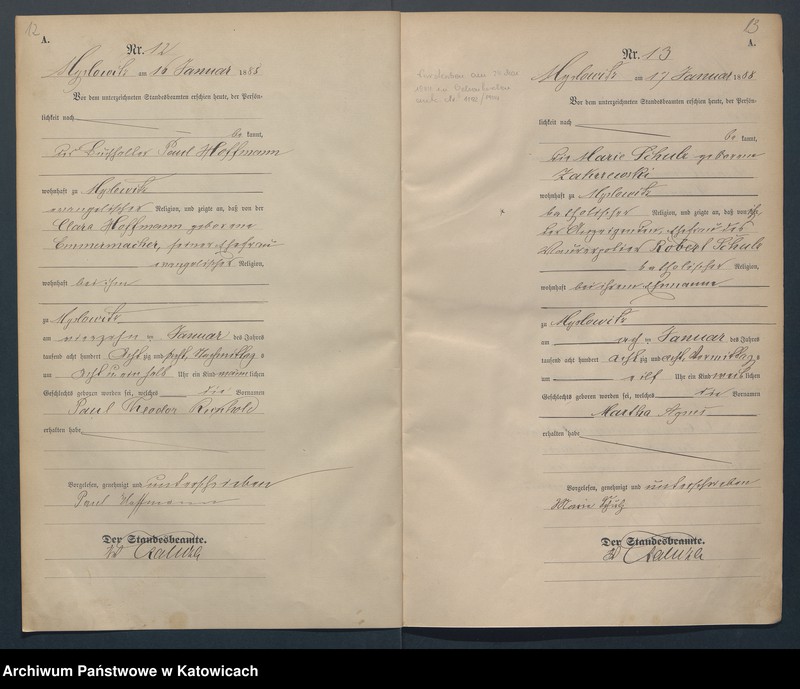 12
A.
Nr. 12
Myslowitz am 16 Januar 1888
Vor dem unterzeichneten Standesbeamten erschien heute, der Persön-
lichkeit nach
be kannt,
der Buchhalter Paul Hoffmann
wohnhaft zu Myslowitz
evangelischer Religion, und zeigte an, daß von der
Clara Hoffmann geborene
seiner Ehefrau
evangelischer Religion,
wohnhaft bei ihm
zu Myslowitz
am vierzehn ten Januar des Jahres
tausend acht hundert Acht zig und acht, Nachmittag s
um acht u ein halb Uhr ein Kind männlichen
Geschlechts geboren worden sei, welches die Vornamen
Paul Theodor Reinhold
erhalten habe
Vorgelesen, genehmigt und unterschrieben
Paul Hoffmann
Der Standesbeamte.
13
A.
Nr. 13
Myslowitz am 17 Januar 1888
Vor dem unterzeichneten Standesbeamten erschien heute, der Persön-
lichkeit nach
be kannt,
die Marie Schulz geborene
Zakrzewski
wohnhaft zu Myslowitz
katholischer Religion, und zeigte an, daß von ihr,
der Anzeigenden, Ehefrau des
Maurerpolier Robert Schulz
katholischer Religion,
wohnhaft bei ihrem Ehemanne
zu Myslowitz
am acht ten Januar des Jahres
tausend acht hundert acht zig und acht Vormittag s
um eilf Uhr ein Kind weiblichen
Geschlechts geboren worden sei, welches die Vornamen
Martha Agnes
erhalten habe
Vorgelesen, genehmigt und unterschrieben
Marie Schulz
Der Standesbeamte.
Archiwum Państwowe w Katowicach